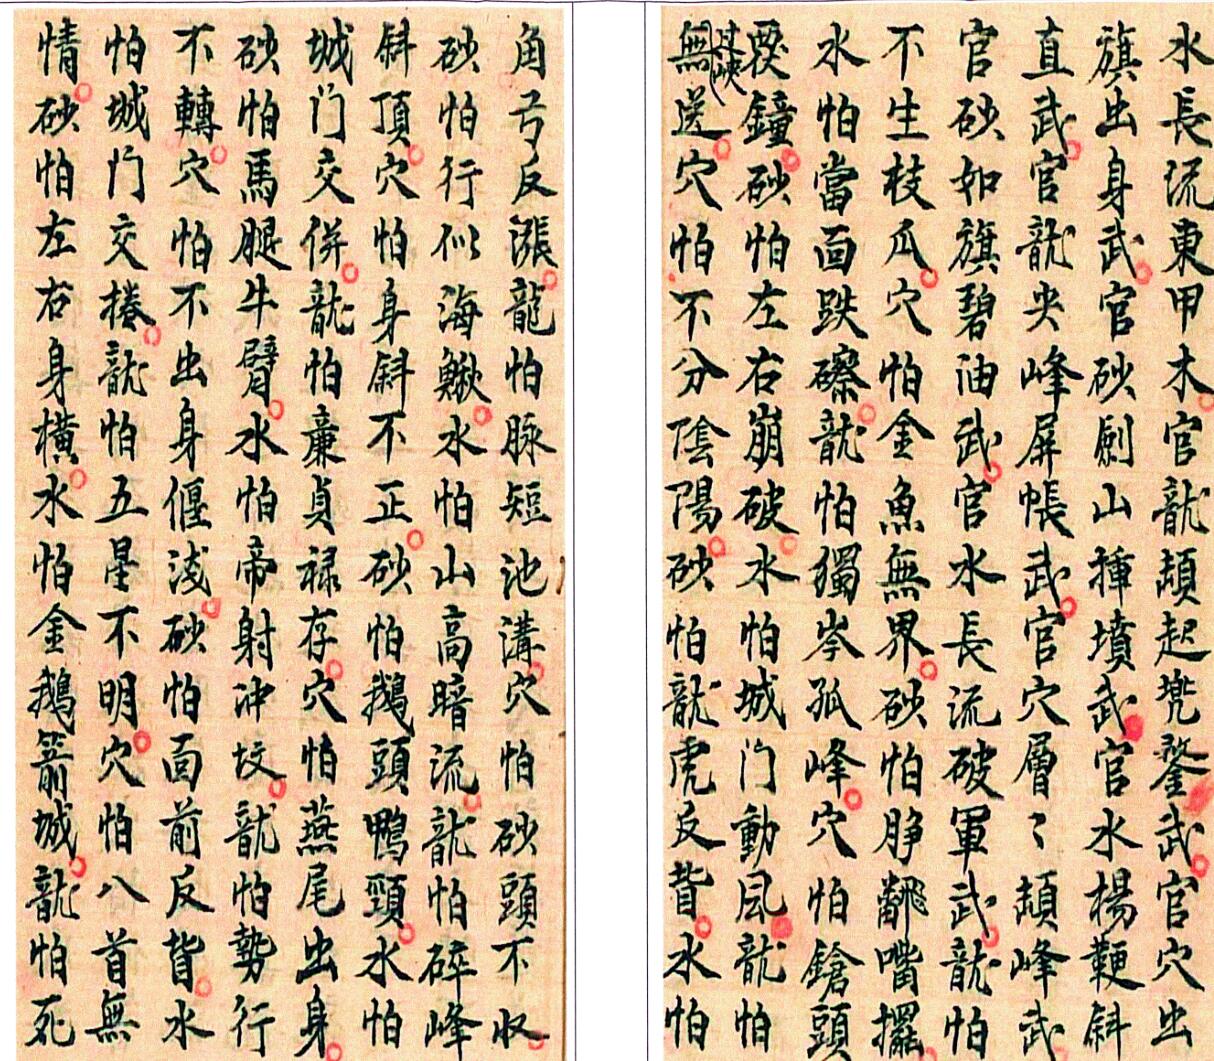 水長流東甲木官龍顛起兠鍪武官穴出
旗出身武官砂劍山揷墳武官水楊鞕斜
直武官龍央峰屏帳武官穴層〻顛峰武
官砂如旗碧油武官水長流破軍武龍怕
不生枝瓜穴怕金魚無界砂怕脝翻嘴擺
水怕當面跌磜龍怕獨岑孤峰穴怕鎗頭
覆鐘砂怕左右崩破水怕城门動風龍怕
過峽
無送穴怕不分陰陽砂怕龍虎反背水怕
角弓反漲龍怕脉短池溝穴怕砂頭不收
砂怕行似海鰍水怕山高暗流龍怕碎峰
斜頂穴怕身斜不正砂怕鵝頭鴨頸水怕
城门交併龍怕亷貞禄存穴怕燕尾出身
砂怕馬腿牛臂水怕帝射冲坟龍怕勢行
不轉穴怕不出身偃浅砂怕面前反背水
怕城门交捲龍怕五星不明穴怕八首無
情砂怕左右身横水怕金鵝箭城龍怕死